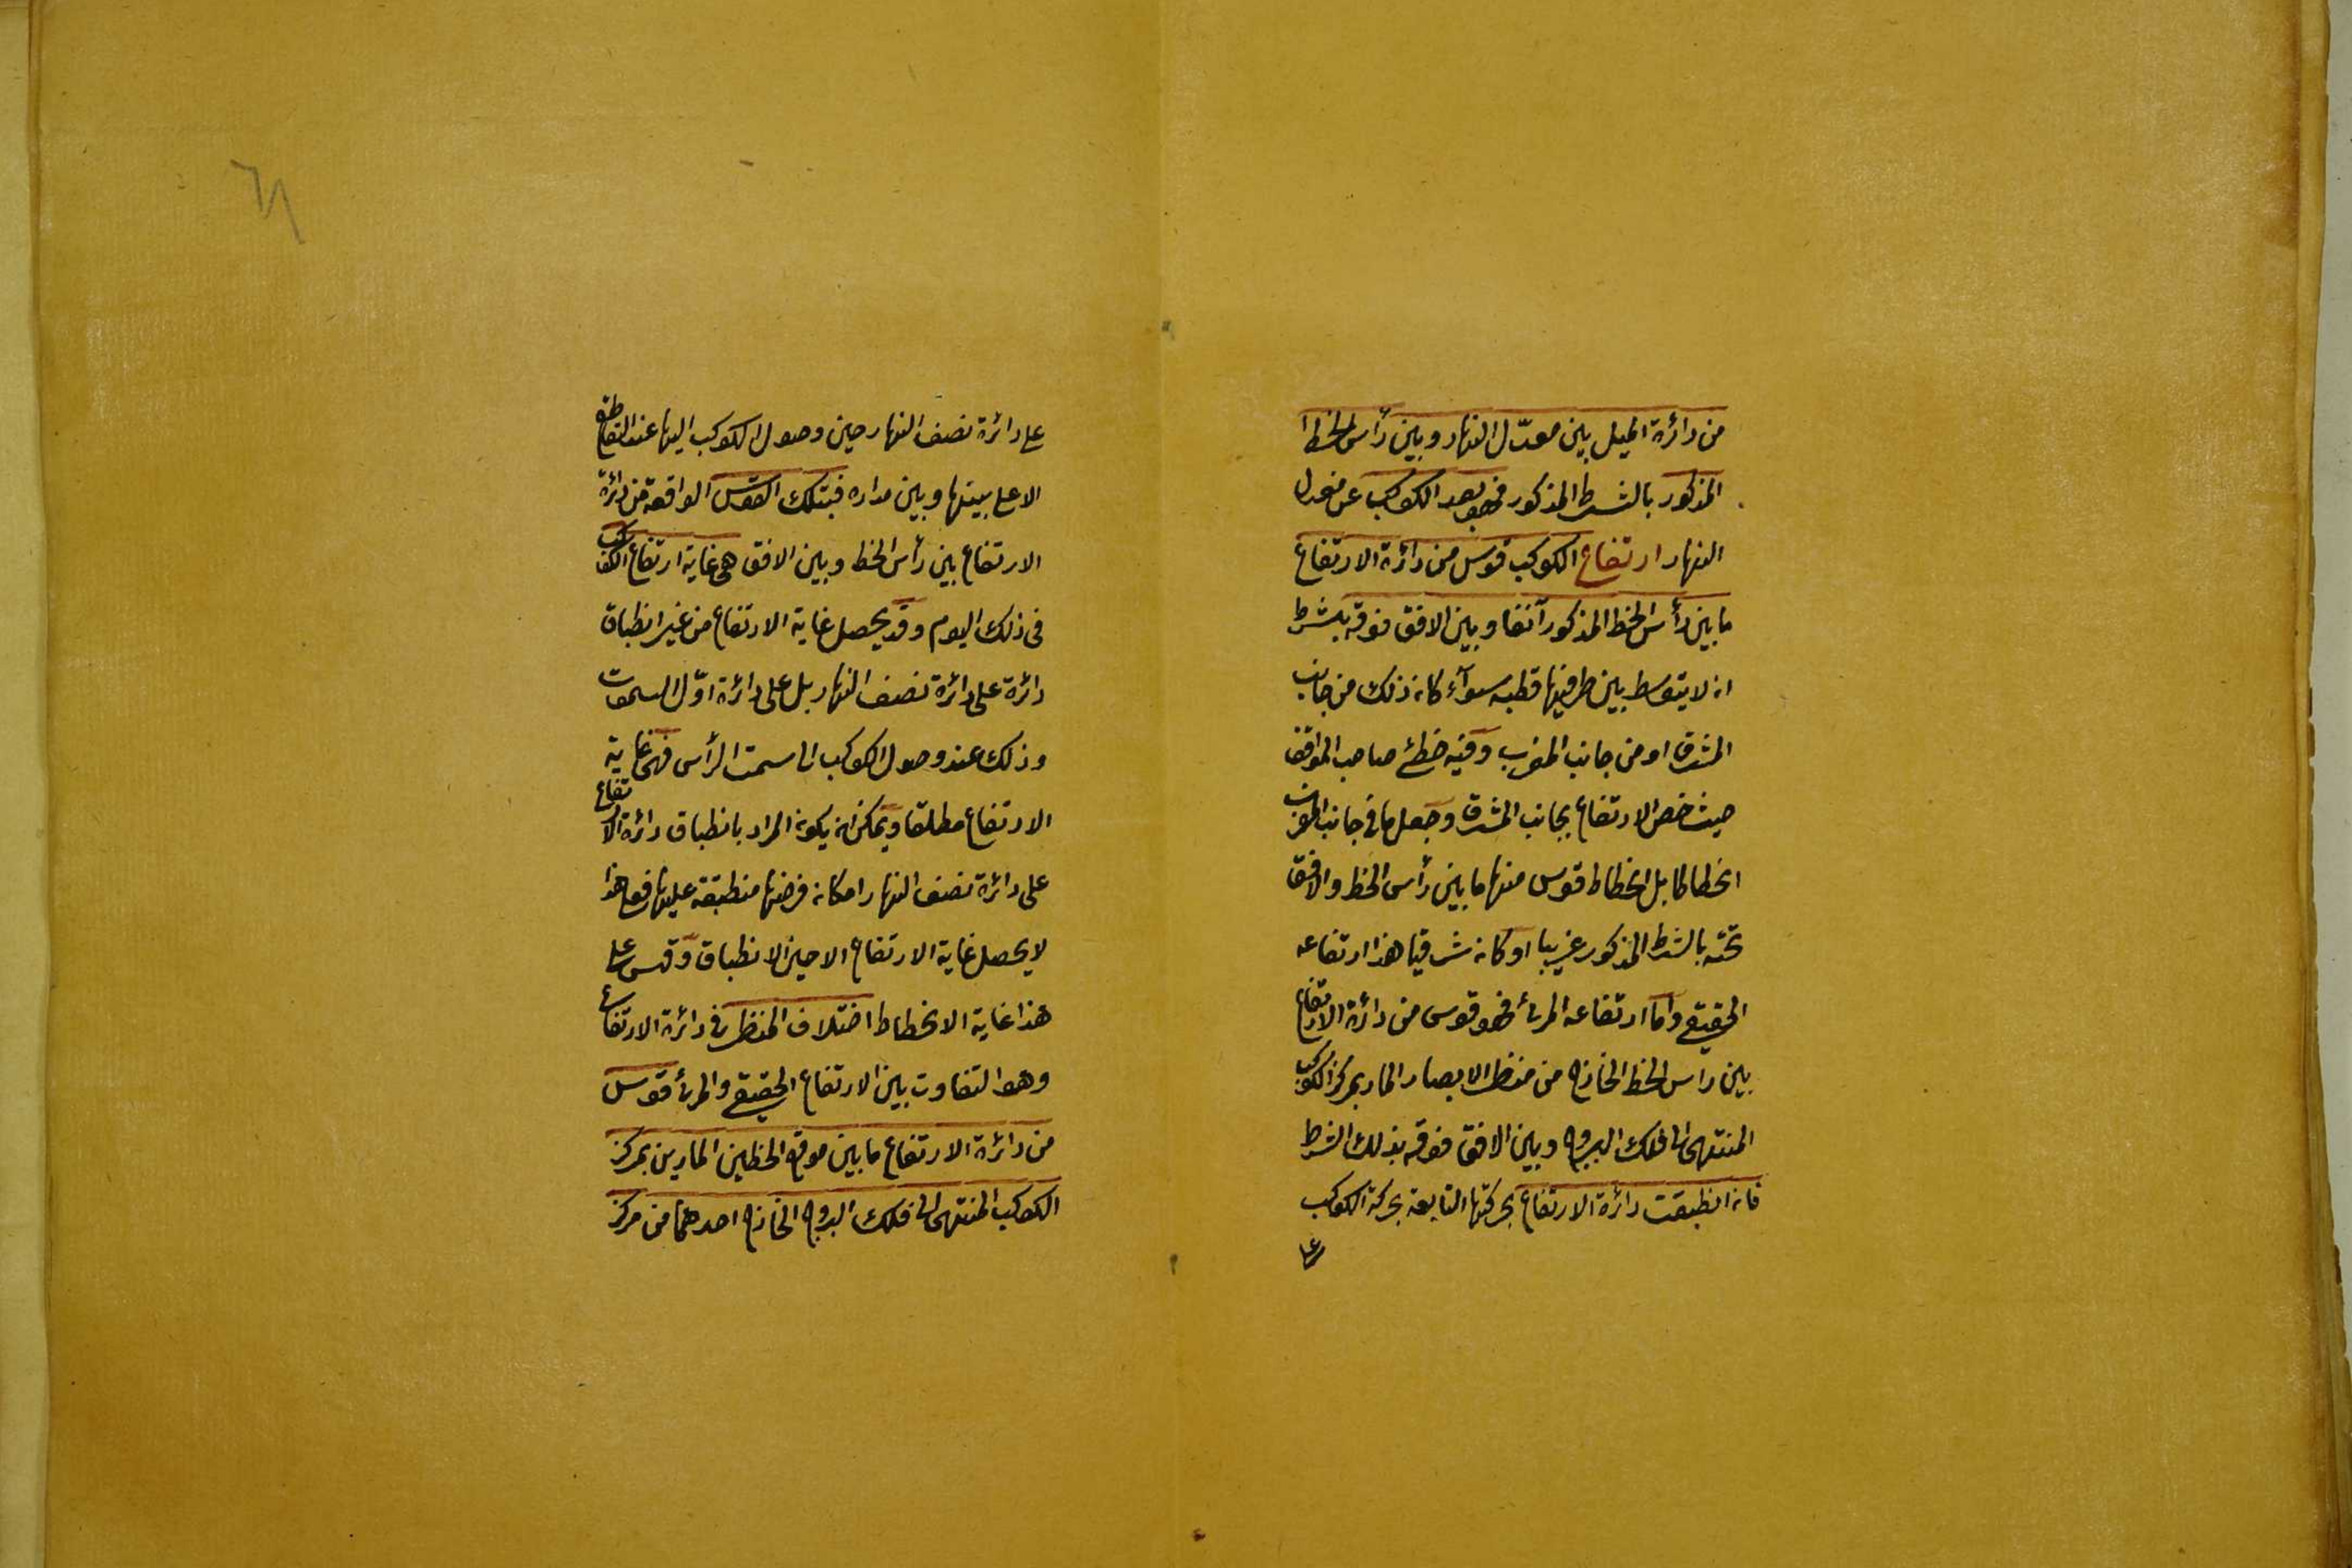 من دائرة الميل بين معدّل النهار وبين رأس الخط
المذكور بالشرط المذكور فهو بعد الكوكب عن معدل
النهار ارتفاع الكوكب قوس من دائرة الارتفاع
ما بين رأس الخط المذكور آنفا وبين الافق فوقه بشرط
ان لا يتوسط بين طرفيها قطبه سوآء كان ذلك من جانب
المشرق او من جانب المغرب وفيه خطئ صاحب المواقف
حيث خص الارتفاع بجانب المشرق وجعل ما في جانب المغرب
انحطاطا بل انحطاط قوس منها ما بين رأس الخط والافق
تحته بالشرط المذكور غربيا او كان شرقيا هذا ارتفاعه
الحقيقي وأما ارتفاعه المرئ فهو قوس من دائرة الارتفاع
بين راس الخط الخارج من منظر الابصار المار بمركز الكوكب
المنتهى الى فلك البروج وبين الافق فوقه بذلك الشرط
فان انطبقت دائرة الارتفاع بحركتها التابعة بحركة الكوكب
على
٦٨
على دائرة نصف النهار حين وصول الكوكب اليها عند التقاطع
الاعلى بينها وبين مداره فبتلك القوس الواقعة من دائرة
الارتفاع بين رأس الخط وبين الافق هى غاية ارتفاع الكوكب
فى ذلك اليوم وقد يحصل غاية الارتفاع من غير انطباق
دائرة على دائرة نصف النهار بل على دائرة اوّل السموت
وذلك عند وصول الكوكب الى سمت الرأس فهى غاية
الارتفاع مطلقا ويمكن ان يكون المراد بانطباق دائرة الارتفاع
على دائرة نصف النهار امكان فرضها منطبقة عليها فعلى هذا
لا يحصل غاية الارتفاع الا حين الانطباق وقس على
هذا غاية الانحطاط اختلاف المنظر فى دائرة الارتفاع
وهو التفاوت بين الارتفاع الحقيقي والمرئ قوس
من دائرة الارتفاع ما بين موقع الخطين المارين بمركز
الكوكب المنتهى الى فلك البروج الخارج احدهما من مركز